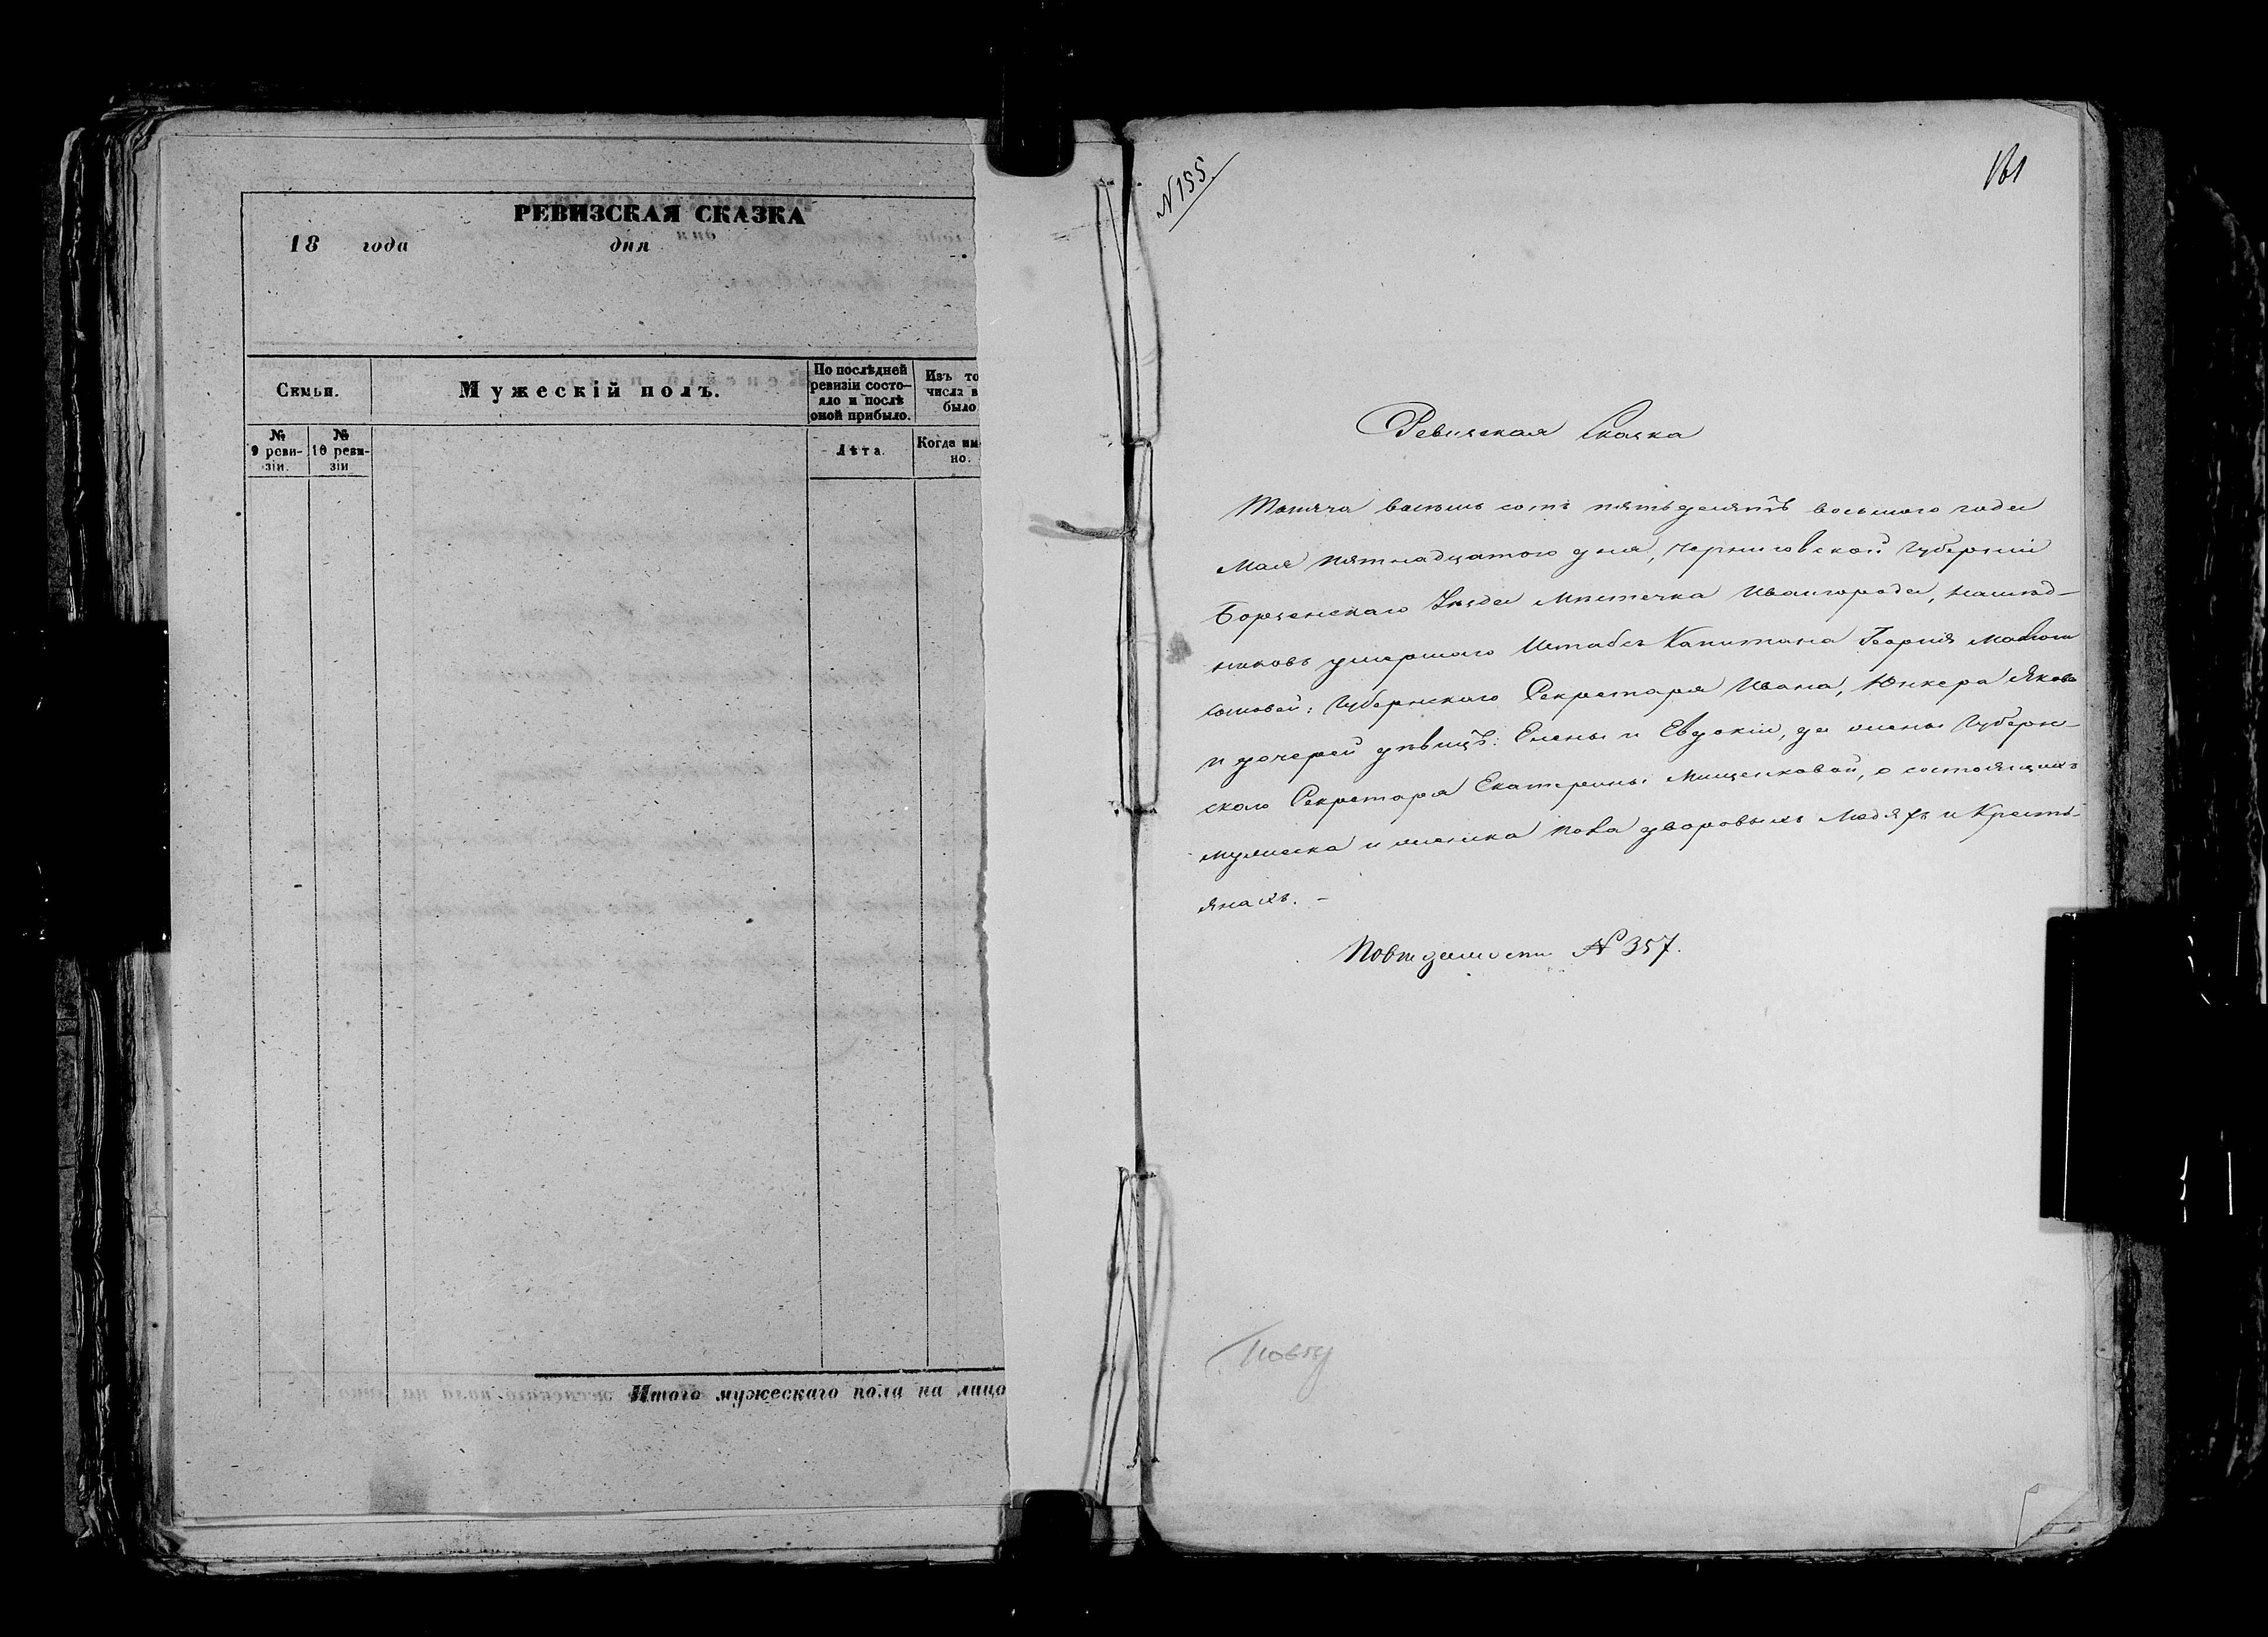 РЕВИЗСКАЯ СКАЗКА
18 года дня
Семьи.
Мужескій полъ.
По послѣдней
ревизіи состо-
яло и послѣ
оной прибыло.
Изъ то
числа в
было
№
9 реви-
зіи.
№
10 реви-
зіи
Лѣта.
Когда им
но.
Итого мужескаго пола на лицо
N 155.
161
Ревизская Сказка
Тысяча восемь сотъ пятьдесятъ восьмого года
Мая пятнадцатого дня, Черниговской Губерніи
Борзенскаго Уѣзда Мѣстечка Ивангорода, наслѣд-
никовъ умершаго Штабсъ Капитана Георгія
сыновей: Губернскаго Секретаря Ивана, Юнкера Якова
и дочерей дѣвицъ: Елены и Евдокіи, да жены Губерн-
скаго Секретаря Екатерины Мищенковой, о состоящихъ
мужеска и женска пола дворовыхъ людяхъ и Кресть-
янахъ. –
По вѣдомости № 357.